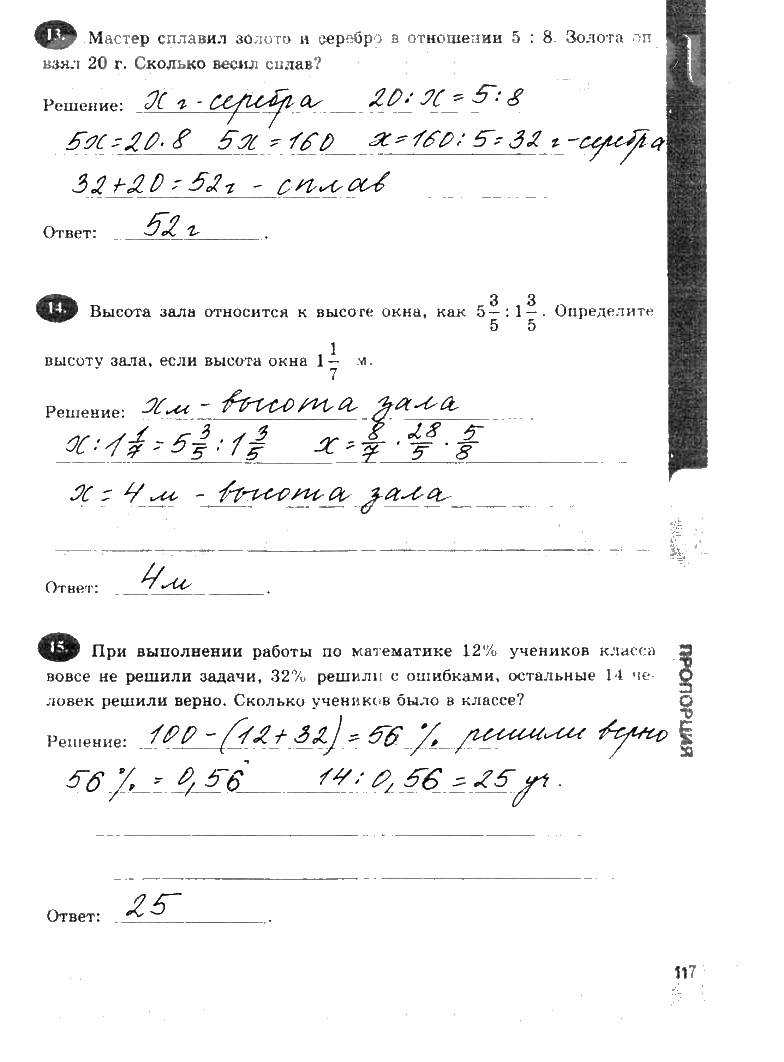 13. Мастер сплавил золото и серебро в отношении 5 : 8. Золота он
взял 20 г. Сколько весил сплав?
Решение: x г - серебра 20 : x = 5 : 8
5x = 20 · 8 5x = 160 x = 160 : 5 = 32 г - серебра
32 + 20 = 52 г - сплав
Ответ: 52 г.
14. Высота зала относится к высоте окна, как 5 3/5 : 1 3/5. Определите
высоту зала, если высота окна 1 1/7 м.
Решение: x м - высота зала
x : 1 1/7 = 5 3/5 : 1 3/5 x = 8/7 · 28/5 · 5/8
x = 4 м - высота зала
Ответ: 4 м.
15. При выполнении работы по математике 12% учеников класса
вовсе не решили задачи, 32% решили с ошибками, остальные 14 че-
ловек решили верно. Сколько учеников было в классе?
Решение: 100 - (12 + 32) = 56 % решили верно
56 % = 0,56 14 : 0,56 = 25 уч.
Ответ: 25.
ПРОПОРЦИЯ
117